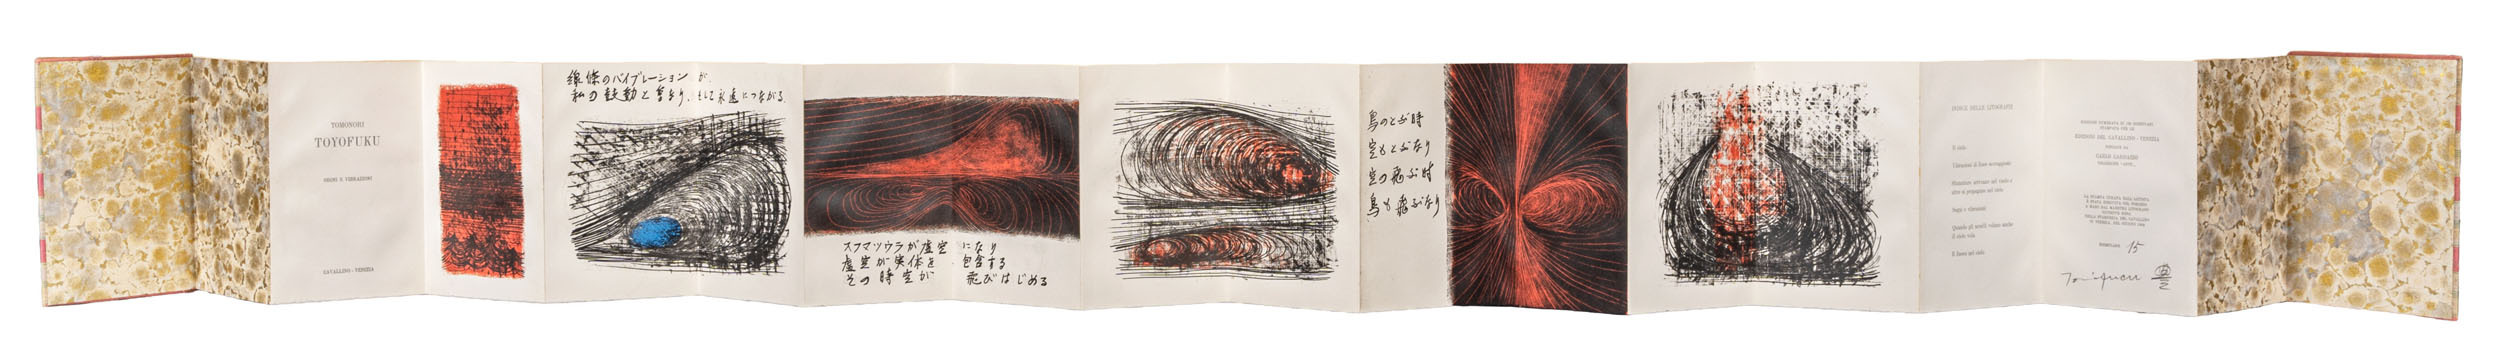 TOMONORI
TOYOFUKU
SEGNI E VIBRAZIONI
CAVALLINO - VENEZIA
線條のバイブレーションが
私の鼓動と重なり、そして永遠につながる、
スフマツウラが虚空になり
虚空が実体を包含する
その時空が飛びはじめる
鳥のとぶ時
空もとぶなり
空の飛ぶ時
鳥も飛ぶなり
INDICE DELLE LITOGRAFIE
Il cielo
Vibrazioni di linee sovrapposte
Sfumature arrivano nel vuoto e
altre si propagano nel cielo
Segni e vibrazioni
Quando gli uccelli volano anche
il cielo vola
Il fuoco nel cielo
EDIZIONE NUMERATA DI 150 ESEMPLARI
STAMPATA PER LE
EDIZIONI DEL CAVALLINO - VENEZIA
DIRETTE DA
CARLO CARDAZZO
LA STAMPA CURATA DALL'ARTISTA
È STATA ESEGUITA SUL TORCHIO
A MANO DAL MAESTRO LITOGRAFO
NELLA STAMPERIA DEL CAVALLINO
IN VENEZIA, NEL GIUGNO 1962
ESEMPLARE 15